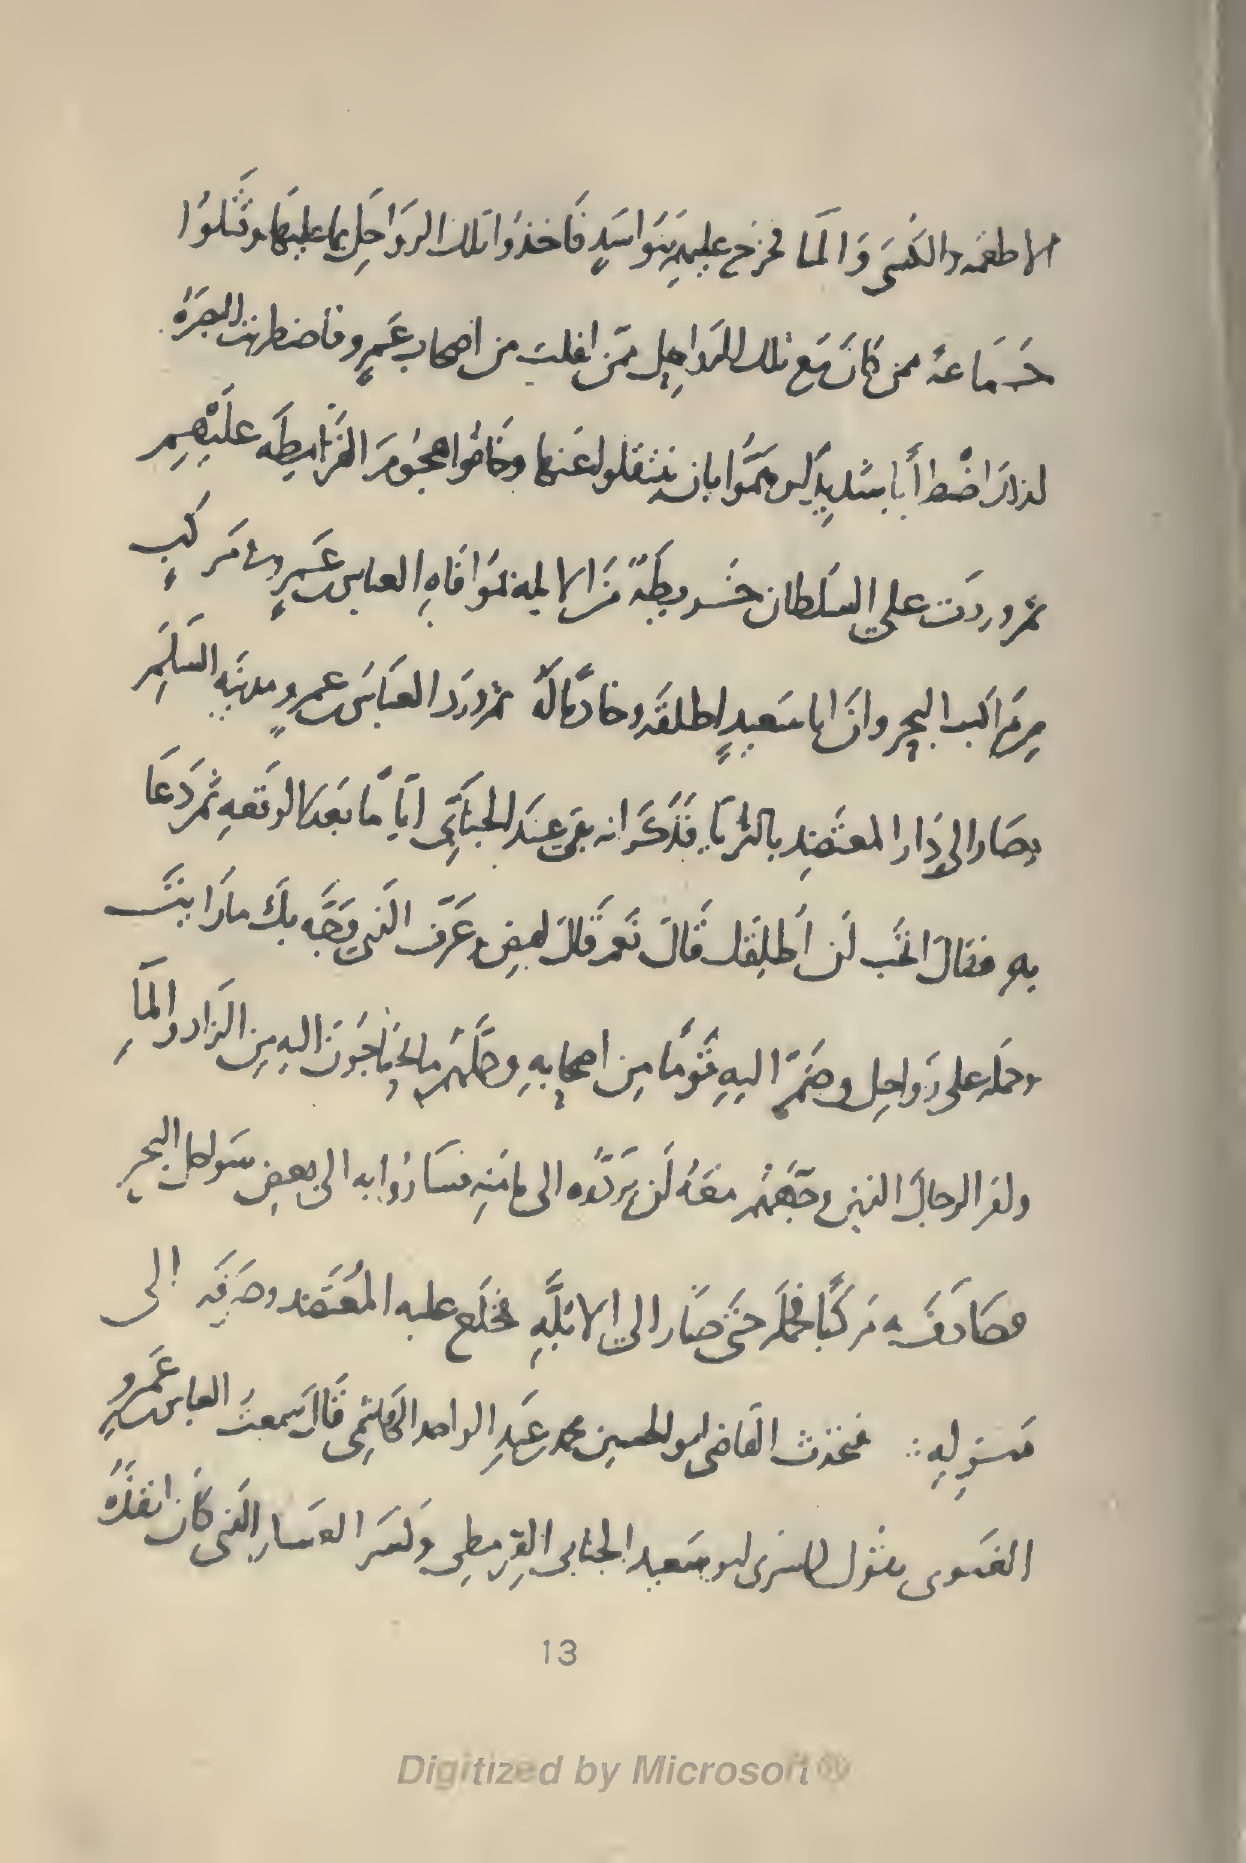 الاطعمه والكُسَى وَالمَا فخرَج عليهم بَنَوا اسَدٍ فَاخذوُا تلك الروَاحِل بما عليهَا وقَتَلوُا
جَمَاعةً ممن كانَ مَع تلك الروَاحِل ممّن افلت من اصحاب عَمرٍو فاضطربت البصرَةُ
لذلك اضْطرَأباً شديدًا وهمَّوُا بان ينتقلوا عَنها وخَافوُا هجوُمَ القرَامِطَه علَيْهِم
ثم وردَت على السُلطان خَريطَةٌ مَن الابلة بموَافَاهِ العباس عَمرٍو في مَركبٍ
مِن مرَاكب البحر وانَ ابا سَعيدٍ اطلقَه وخادمًا لَهُ ثم وَرَد العَبَاسَ عمرٍو مدينَه السَلَمِ
وصَار الى دَار المعتَضِد بالثريَا فَذَكَرَ انه بقى عنِدَ الجنابَيّ ايَاماً بَعدَ الوقعَهِ ثمَ دَعَا
بهِ فقالَ اتحُب اَن اُطلِقَك قَالَ نَعم قَالَ امضِ وعَرّف الَذي وَجَّه بكَ مَا رَاَيتَ
وحمَله على رَوَاحِل وضَمّ اليهِ قَومًا مِن اصحابهِ وحمَّلهُم ما يحتَاجُونَ اليه مِن الزاد والمآءِ
وامر الرجالَ الذين وجَّههُم معَهُ اَن يَردّوُه الى مامَنهِ فسَارُوا به الى بعضِ سَواحل البحرِ
فصَادَفَ به مَركَباً فحَملَه حَتَى صَار الى الابُلَّهِ فخلَع عليه المُعتَضد وصَرفَه الى
مَنزِلِهِ ∴ فتحَدّث القَاضي ابو الحسين محمد عَبدِ الواحد الهَاشِميّ قَال سَمعتُ العباس عَمرٍو
الغنَوى يقوُل اسَرنى ابو سَعيد الجنابى القِرمطى وكَسَر العسَكر الذَي كانَ انفذَهُ
13
Digitized by Microsoft®